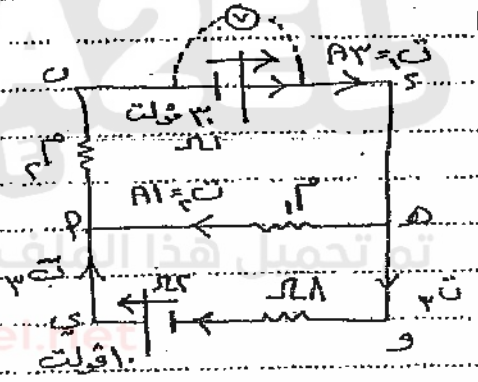 V
ت١ = ٣A
ب
د
٣٠ ڤولت
١Ω
م٢
ت٢ = ١A
م١
م
هـ
ت٣
ت٣
٢Ω
٨Ω
ي
و
١٠ ڤولت
تم تحميل هذا الملف